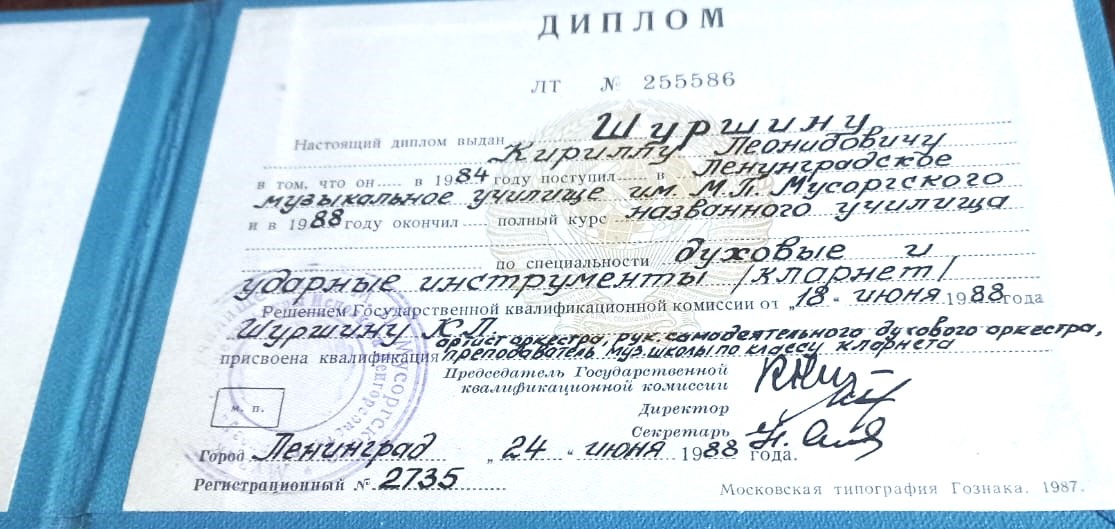 ДИПЛОМ
ЛТ № 255586
Настоящий диплом выдан Шуршину
Кириллу Леонидовичу
в том, что он в 1984 году поступил в Ленинградское
музыкальное училище им. М.П. Мусоргского
и в 1988 году окончил полный курс названного училища
по специальности духовые и
ударные инструменты /кларнет/
Решением Государственной квалификационной комиссии от „18“ июня 1988 года
Шуршину К.Л.
артист оркестра, рук. самодеятельного духового оркестра,
присвоена квалификация преподаватель муз. школы по классу кларнета
Председатель Государственной
квалификационной комиссии
Директор
м. п.
Секретарь
Город Ленинград „24“ июня 1988 года.
Регистрационный № 2735
Московская типография Гознака. 1987.